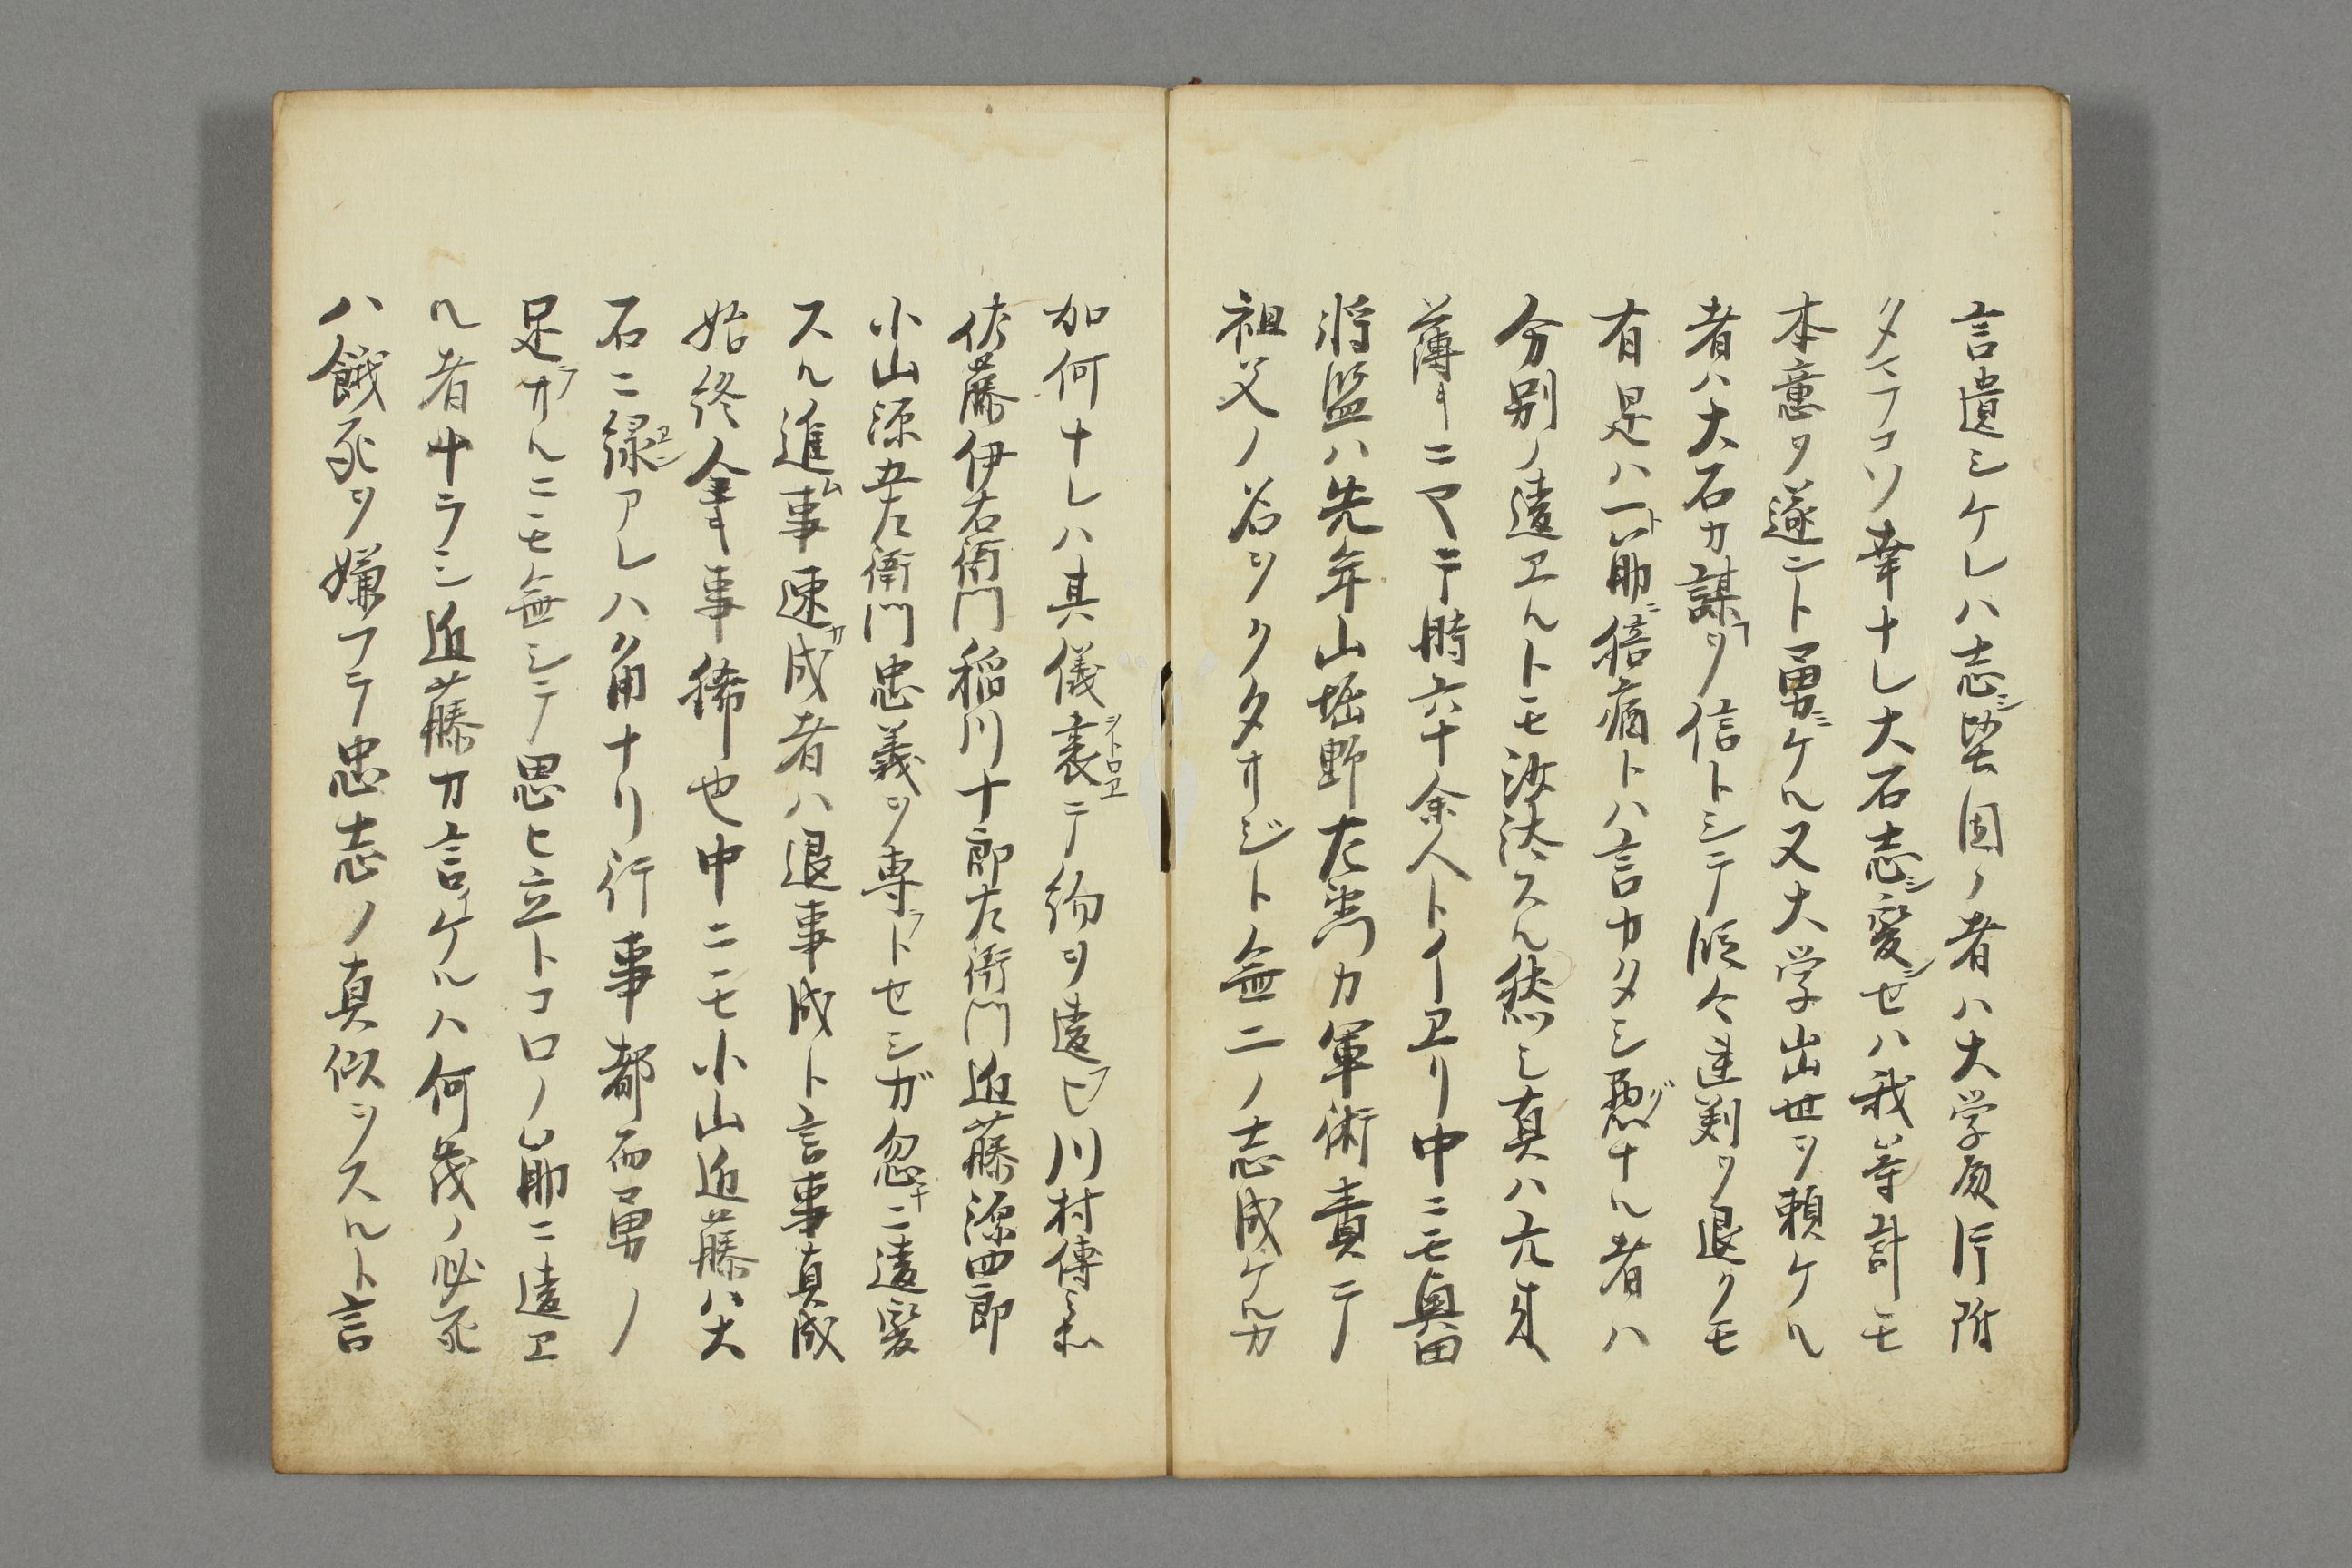 言遣シケレハ志シ堅固ノ者ハ大学殿片附
タマフコソ幸ナレ大石志シ変シセハ我等計モ
本意ヲ遂ント勇ミケル又大学出世ヲ頼ケル
者ハ大石カ謀ヲ信トシテ段々連判ヲ退クモ
有是ハ一ト筋ニ俉病トハ言カタシ愚ナル者ハ
分別ノ違エルトモ沙汰スル然シ真ハ亢来
薄キニヤニテ時六十余人トイヱリ中ニモ奥田
将監ハ先年山堀野左衛門カ軍術責テ
祖父ノ名ヲクタサジト無二ノ志成ケルカ
加何ナレハ其儀衰シトロヱテ約ヲ違ヒ川村傳
佐藤伊右衛門稲川十郎左衛門近藤源四郎
小山源五左衛門忠義ヲ専ラトセシガ忽チニ違変
スル進ム事速カ成者ハ退事成ト言事真成
始終全キ事稀也中ニモ小山近藤ハ大
石ニ縁アレハ角ナリ行事都而勇ノ
足ラサルニモ無シテ思ヒ立トコロノ筋ニ違ヱ
ル者ナラン近藤カ言イケルハ何茂ノ必死
ハ餓死ヲ嫌フテ忠志ノ真似ヲスルト言